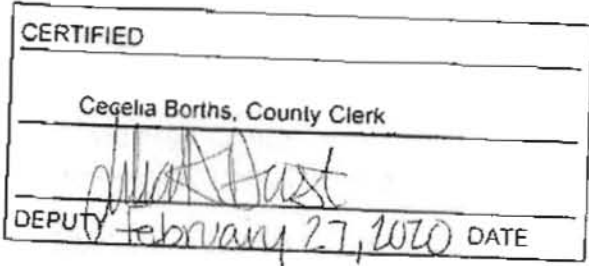 CERTIFIED
Cecelia Borths, County Clerk
DEPUTY February 27, 2020 DATE